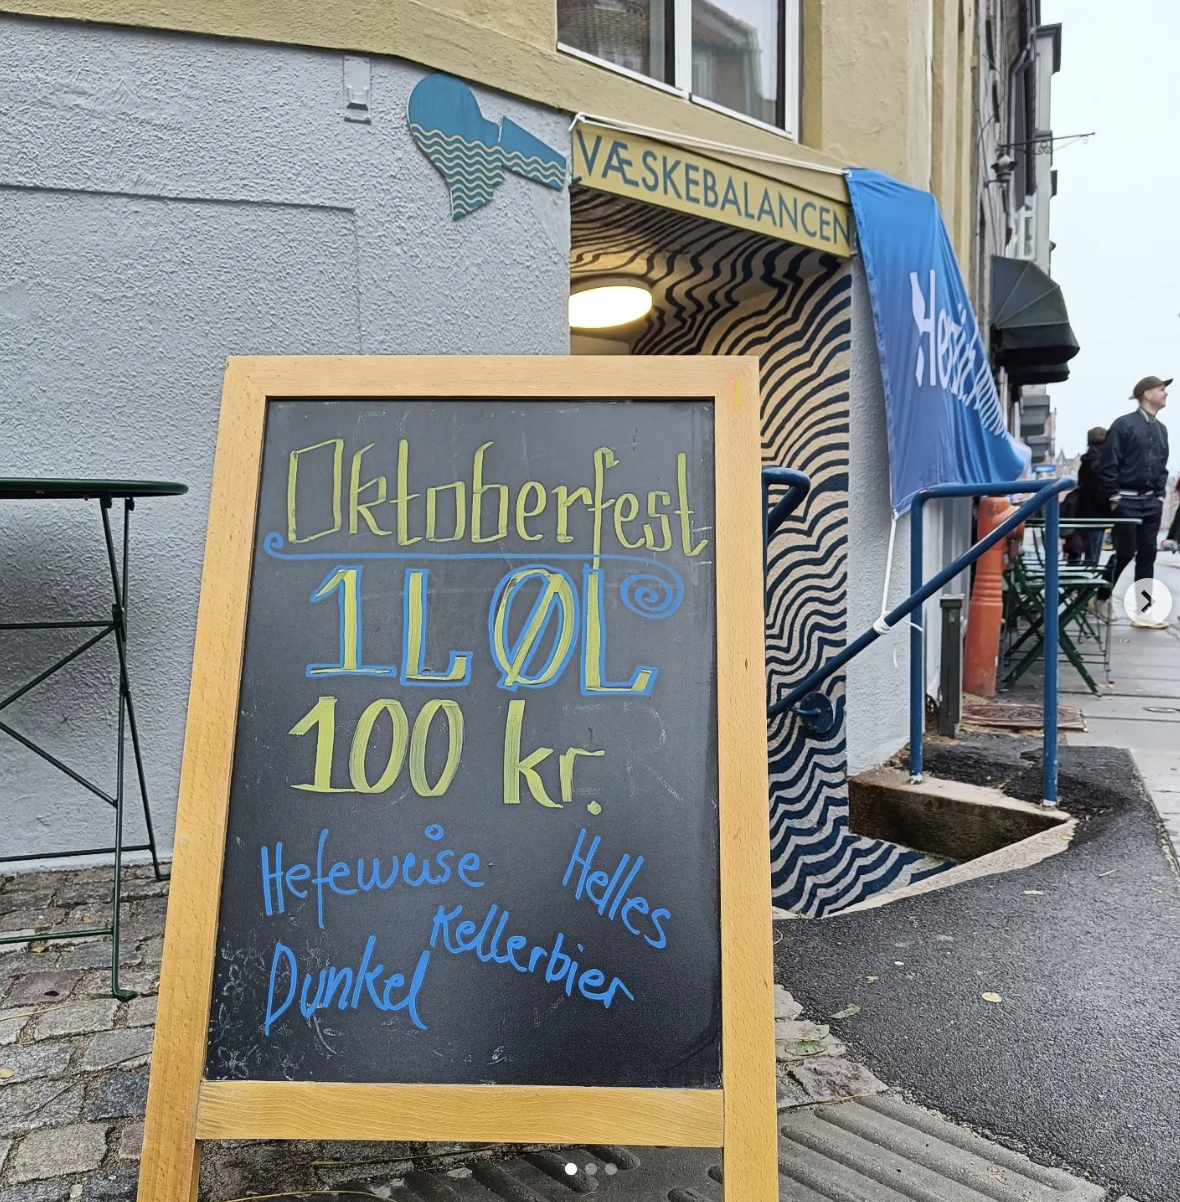 VÆSKEBALANCEN
Oktoberfest
1L ØL
100 kr.
Hefeweise
Helles
Kellerbier
Dunkel